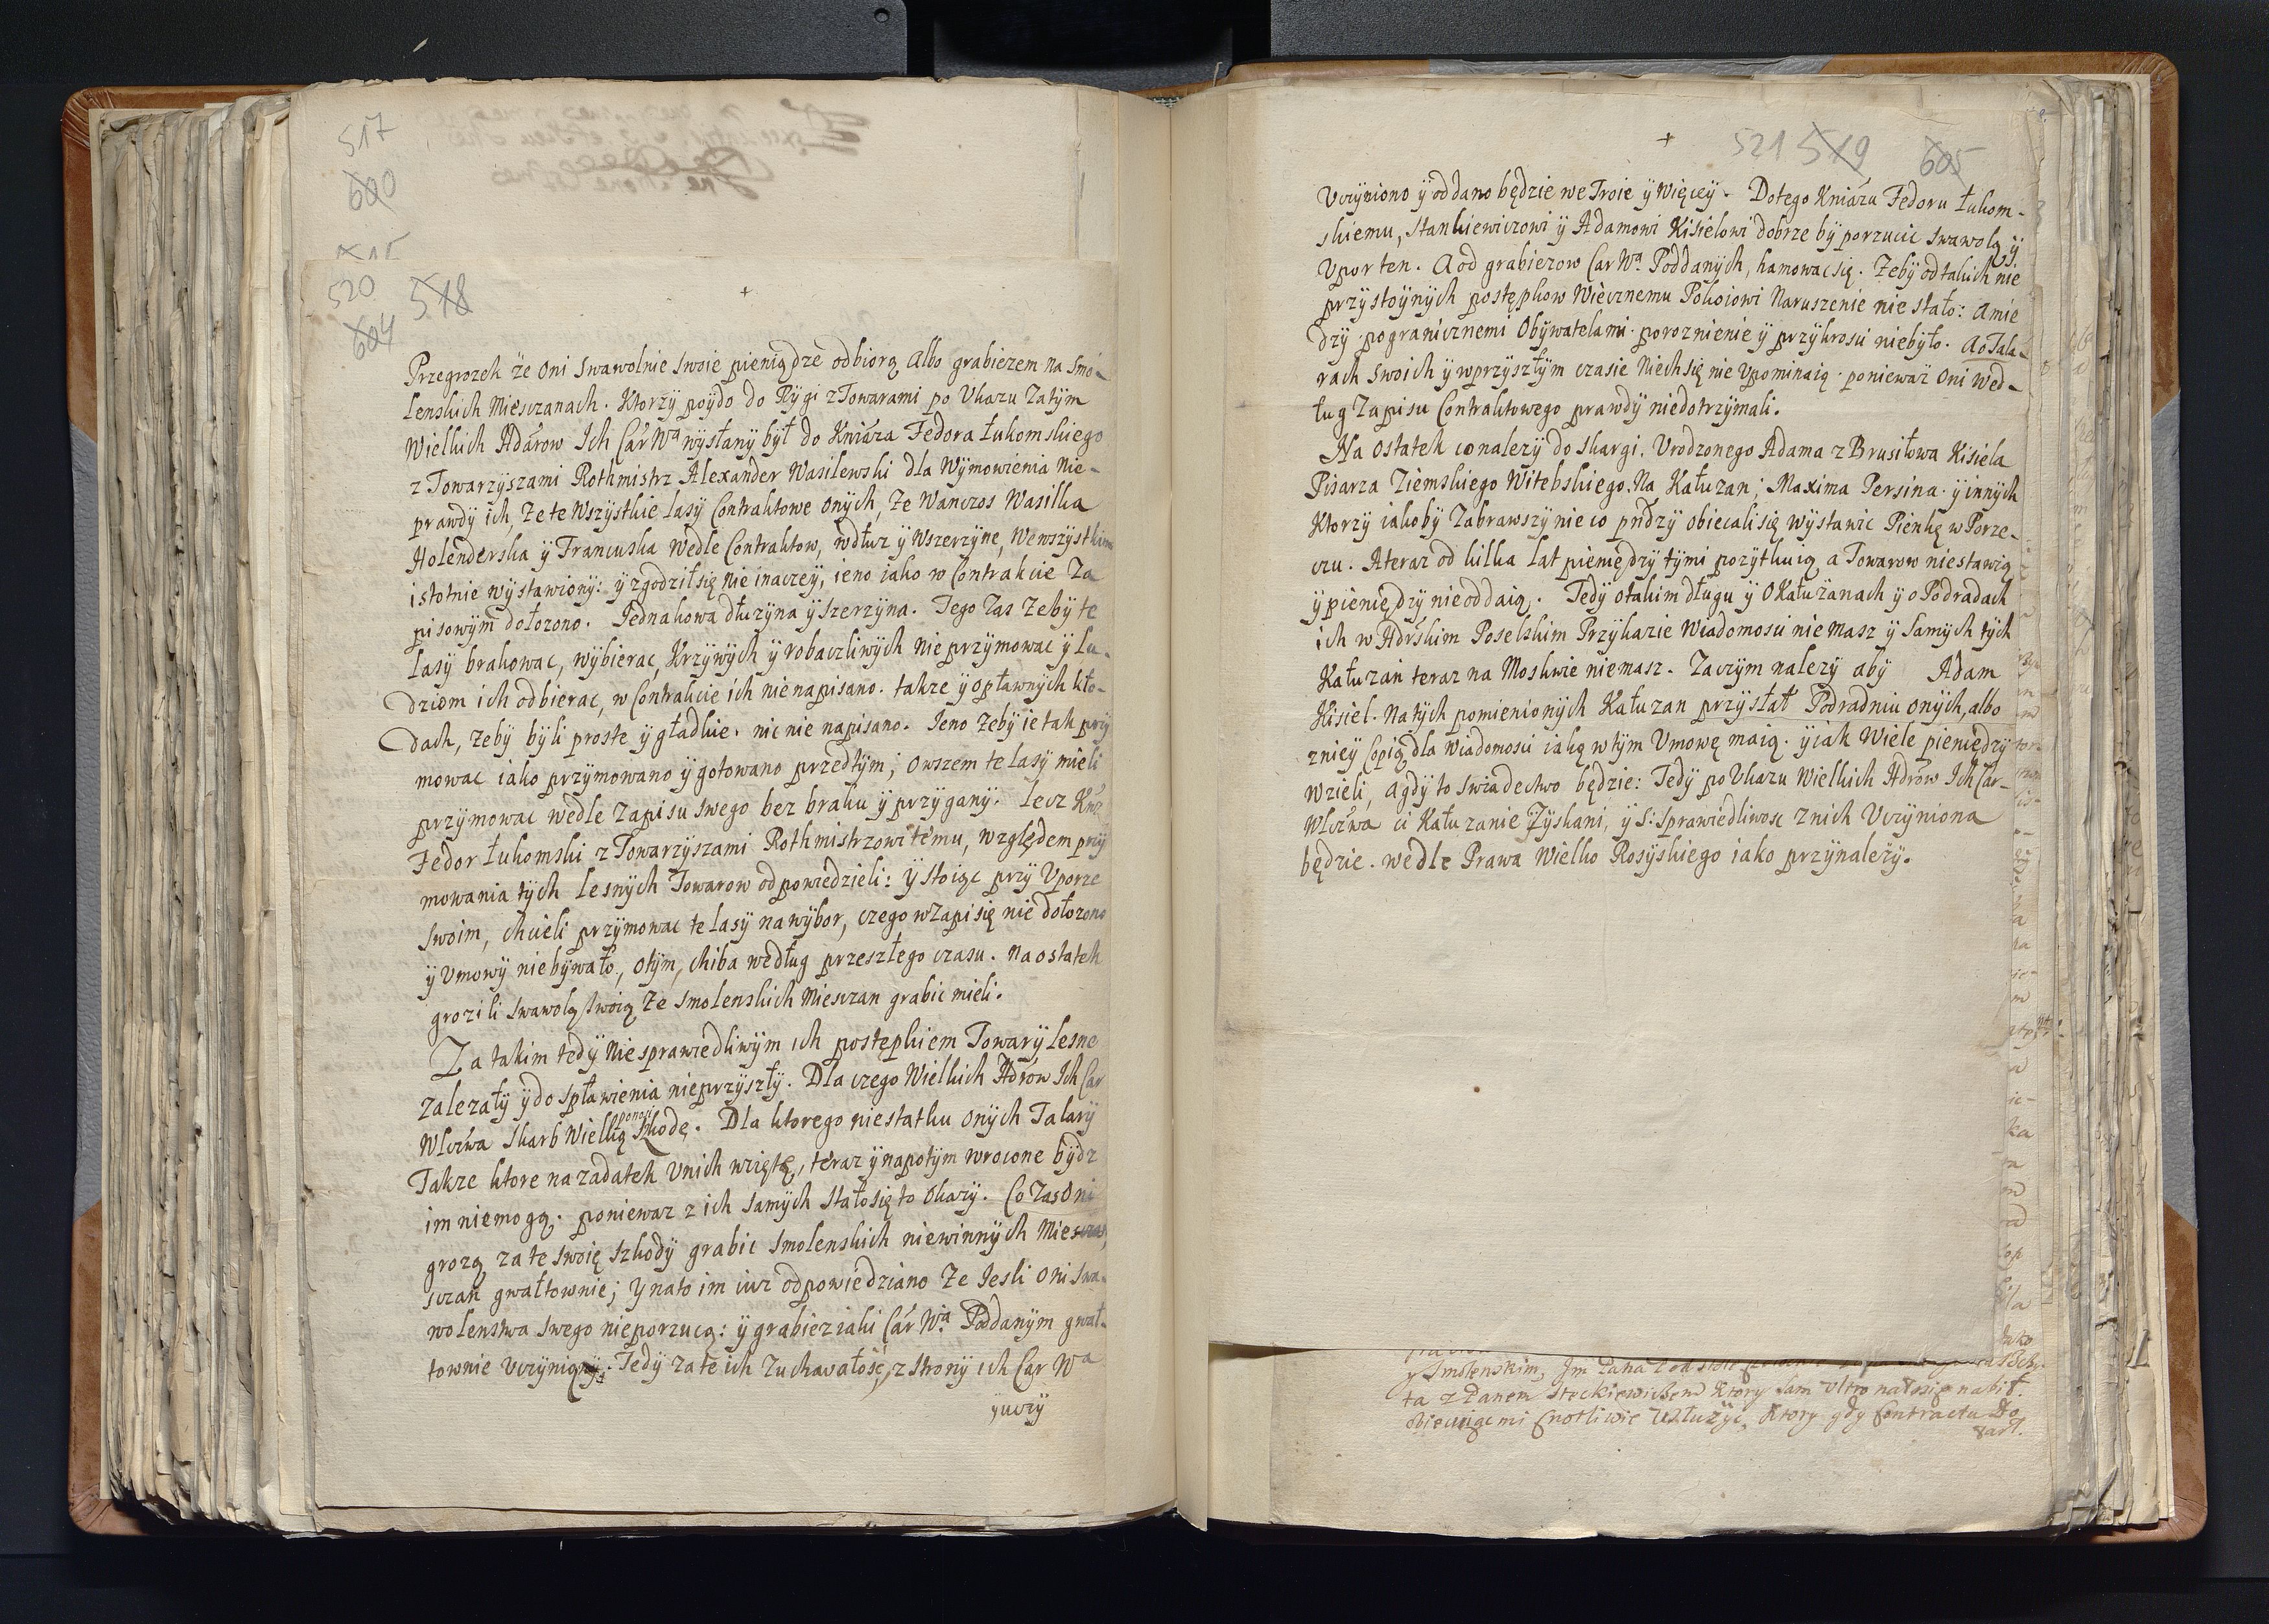 517
600
520 518
604
+
Przegrozek że oni swawolnie swoie pieniądze odbiorą albo grabiezem na Smo-
lenskich Miesczanach. Ktorzÿ poÿdo do Rÿgi z Towarami po Ukazu Zatÿm
Wielkich Hdárow Ich Car Wa wÿsłanÿ bÿł do Kniáza Fedora Łukomskiego
z Towarzÿszami Rothmistrz Alexander Wasilewski dla Wÿmowienia Nie-
prawdÿ ich, Ze te Wszÿstkie lasÿ Contraktowe onÿch, Ze Wanczos Wasilka
Holenderska ÿ Francuska Wedle Contraktow, wdłuz ÿ Wszerzÿne, We wszÿstkim
istotnie wÿstawionÿ: ÿ zgodził się nie inaczeÿ, ieno iako w Contrakcie Za
pisowÿm dołozono. Jednakowa dłuzÿna ÿ szerzÿna. Tego Zas Zebÿ te
lasÿ brakowac, wÿbierac, Krzÿwÿch ÿ robaczliwÿch nie przÿmowac ÿ lu-
dziom ich odbierac, w Contrakcie ich nie napisano. takze ÿ opławnÿch kło-
dach, zebÿ bÿli proste ÿ gładkie. nic nie napisano. Ieno zebÿ ie tak przÿ
mowac iako przÿmowano ÿ gotowano przedtÿm; owszem te lasÿ mieli
przÿmowac wedle Zapisu swego bez braku ÿ przÿganÿ. lecz Knz
Fedor Łukomski z Towarzÿszami Rothmistrzowi temu, względem przÿ
mowania tÿch lesnÿch Towarow odpowiedzieli: ÿ stoiąc przÿ Uporze
swoim, chcieli przÿmowac te lasÿ na wÿbor, czego w Zapisię nie dołozono
ÿ Umowÿ nie bÿwało, otÿm, chiba według przeszłego czasu. na ostatek
grozili swawolą swoią Ze Smolenskich Miesczan grabic mieli.
Za takim tedÿ niesprawiedliwÿm ich postępkiem Towarÿ lesne
zalezałÿ ÿ do spławienia nie przÿszłÿ. Dla czego Wielkich Hdrow Ich Car
Wlczwa Skarb Wielką ponosi Szkodę. Dla ktorego niestatku onÿch Talarÿ
Takze ktore na zadatek Unich wzięte, teraz ÿ napotÿm wrocone bÿdz
im niemogą. poniewaz z ich samÿch stało się to Okazÿ. Co Zas Oni
grozą za te swoię szkodÿ grabic Smolenskich niewinnÿch Miesczan,
sczan gwałtownie; ÿ nato im iuz odpowiedziano Ze Iesli oni swa-
wolenstwa swego nie porzucą: ÿ grabiez iaki Car Wa Poddanÿm gwał-
townie Uczÿnią. Tedÿ za te ich Zuchwałość, z stronÿ ich Car Wa
ÿ uczÿ
+
521 519 605
Uczÿniono ÿ oddano będzie we Troie ÿ Więceÿ. Dotego Kniázu Fedoru Łukom-
skiemu, Stankiewiczowi ÿ Adamowi Kisielowi dobrze bÿ porzucic swawolą ÿ
Upor ten. A od grabiezow Car Wa Poddanÿch, hamowac się. Zebÿ od takich nie
przÿstoÿnÿch postępkow Wiecznemu Pokoiowi Naruszenie nie stało: a mie
dzÿ pogranicznemi Obÿwatelami poroznienie ÿ przÿkrosci niebÿło. A o Tala-
rach swoich ÿ w przÿszłÿm czasie Niech się nie Upominaią. poniewaz oni Wed-
ług Zapisu Contraktowego prawdÿ niedotrzÿmali.
Na ostatek co nalezÿ do skargi. Urodzonego Adama z Brusiłowa Kisiela
Pisarza Ziemskiego Witebskiego. Na Kałuzan; Maxima Persina ÿ innÿch
Ktorzÿ iakobÿ Zabrawszÿ nieco pńdzÿ obiecali się wÿstawic Pienkę w Porze-
czu. A teraz od kilka lat pieniędzÿ tÿmi pozÿtkuią a Towarow niestawią
ÿ pieniędzÿ nie oddaią. Tedÿ o takim długu ÿ o Kałuzanach ÿ o Podradach
ich w Hdrskim Poselskim Przÿkazie Wiadomosci nie masz ÿ samÿch tÿch
Kałuzan teraz na Moskwie niemasz. Zaczÿm nalezÿ abÿ Adam
Kisiel. Na tÿch pomienionÿch Kałuzan przÿsłał Podradniu onÿch, albo
znieÿ Copią dla wiadomosci iaką w tÿm Umowę maią. ÿ iak Wiele pieniędzÿ
Wzieli, a gdÿ to swiadectwo będzie: Tedÿ po Ukazu Wielkich Hdrow Ich Car-
Wlczwa ci Kałuzanie Zÿskani, ÿ S: Sprawiedliwosc Znich Uczÿniona
będzie. wedle Prawa Wielko Rosÿskiego iako przÿnależÿ.
y Smolenskim, Jm Pana
ta z Panem Steckiewiczem ktory sam ultro
obiecuiąc mi cnotliwie usłużyć, ktory gdy Contractu do